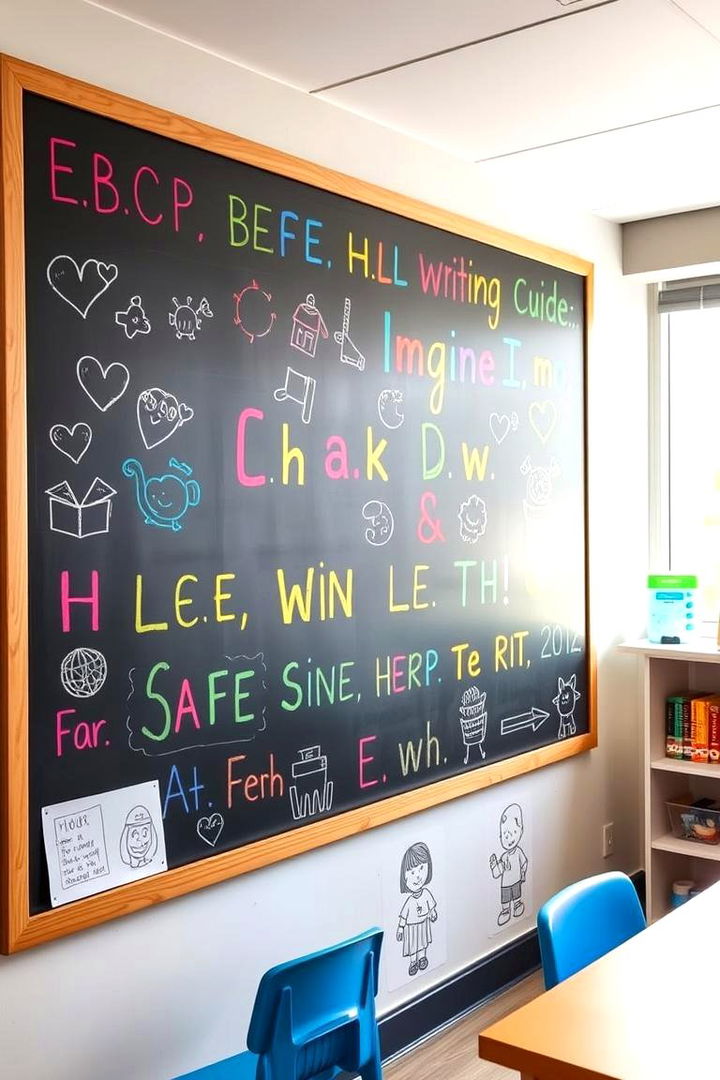 E.B.CP, BEFE, H.LL Writing Cuide...
Imgine I, mo
C.h a.k D.w.
&
H LEE, WIN LE. TH!
Far. SAFE SINE, HERP. Te RIT, 2012
At. Ferh E. wh.